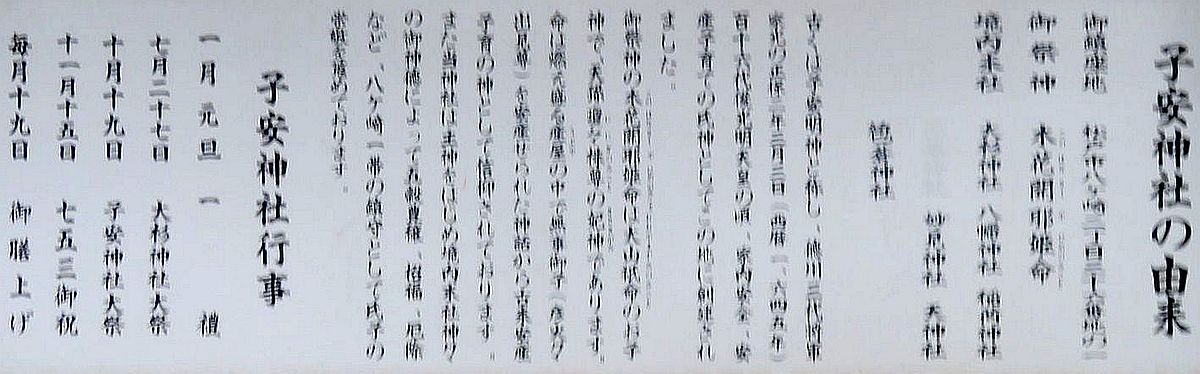 子安神社の由来
御鎮座地 松戸市八ヶ崎二丁目二十六番地の一
御祭神 木花開耶姫命
境内末社 大杉神社 八幡神社 稲荷神社
妙見神社 天神社
神社
古くは子安明神と称し、徳川三代将軍
家光の正保二年三月三日（西暦一、六四五年）
百十代後光明天皇の頃、家内安全、安
産子育子の氏神としてこの地に創建され
ました。
御祭神の木花開耶姫命は大山祇命のお子
神で、天孫瓊々杵尊の妃神であります。
命は燃え盛る産屋の中で無事御子（彦火々
出見尊）を安産せられた神話から古来安産
子育の神として信仰されております。
また当神社は主神をはじめ境内末社神々
の御神徳によって五穀豊穣、招福、厄除
など、八ヶ崎一帯の鎮守として氏子の
崇敬を集めております。
子安神社行事
一月元旦 一 禮
七月二十七日 大杉神社大祭
十月十九日 子安神社大祭
十一月十五日 七五三御祝
毎月十九日 御膳上げ